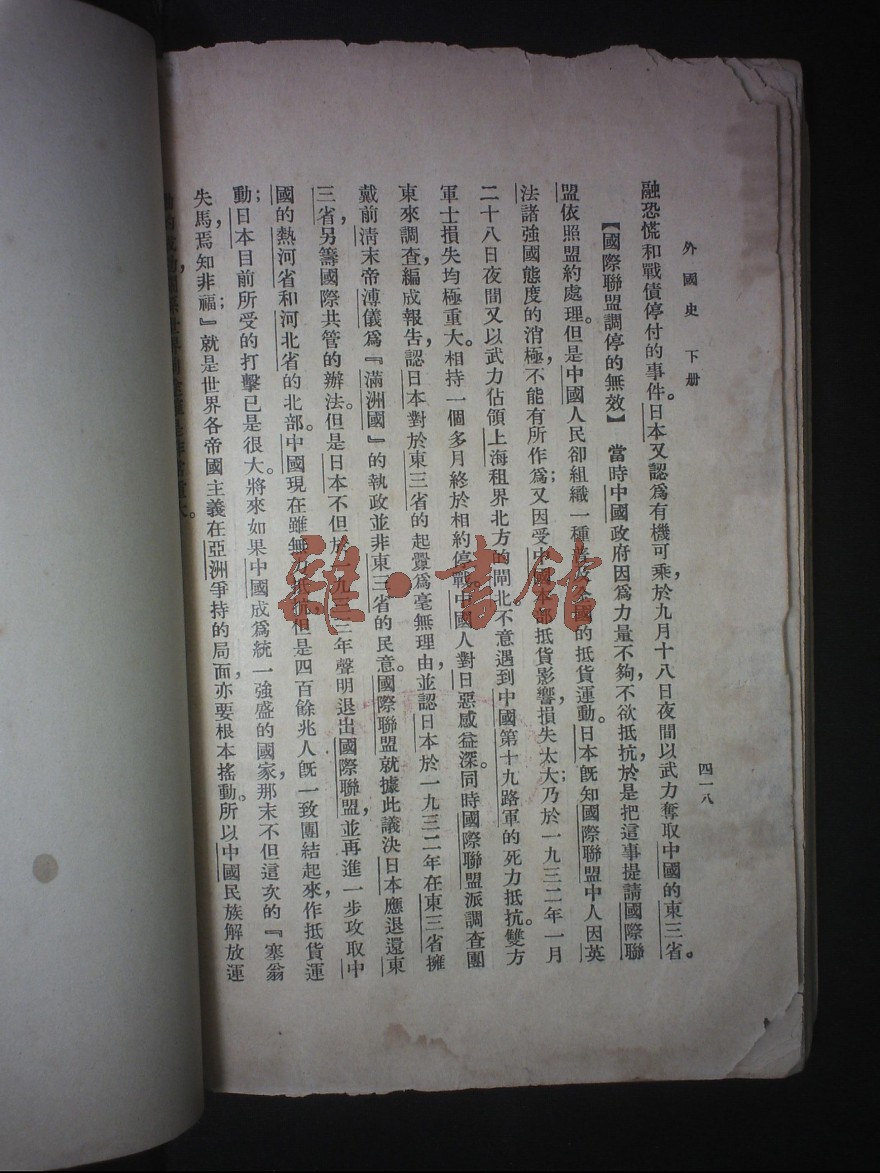 外國史 下册
四一八
融恐慌和戰債停付的事件。日本又認爲有機可乘，於九月十八日夜間以武力奪取中國的東三省。
【國際聯盟調停的無效】 當時中國政府因爲力量不夠，不欲抵抗，於是把這事提請國際聯
盟依照盟約處理。但是中國人民卻組織一種普及全國的抵貨運動。日本旣知國際聯盟中人因英
法諸強國態度的消極，不能有所作爲；又因受中國本部抵貨影響，損失太大；乃於一九三二年一月
二十八日夜間又以武力佔領上海租界北方的閘北，不意遇到中國第十九路軍的死力抵抗，雙方
軍士損失均極重大。相持一個多月，終於相約停戰。中國人對日惡感益深。同時國際聯盟派調查團
東來調查，編成報告，認日本對於東三省的起釁爲毫無理由，並認日本於一九三二年在東三省擁
戴前淸末帝溥儀爲『滿洲國』的執政並非東三省的民意。國際聯盟就據此議決日本應退還東
三省，另籌國際共管的辦法。但是日本不但於一九三三年聲明退出國際聯盟，並再進一步攻取中
國的熱河省和河北省的北部。中國現在雖無力抵抗，但是四百餘兆人旣一致團結起來作抵貨運
動；日本目前所受的打擊已是很大。將來如果中國成爲統一強盛的國家，那末不但這次的『塞翁
失馬，焉知非福；』就是世界各帝國主義在亞洲爭持的局面亦要根本搖動。所以中國民族解放運
雜·書館